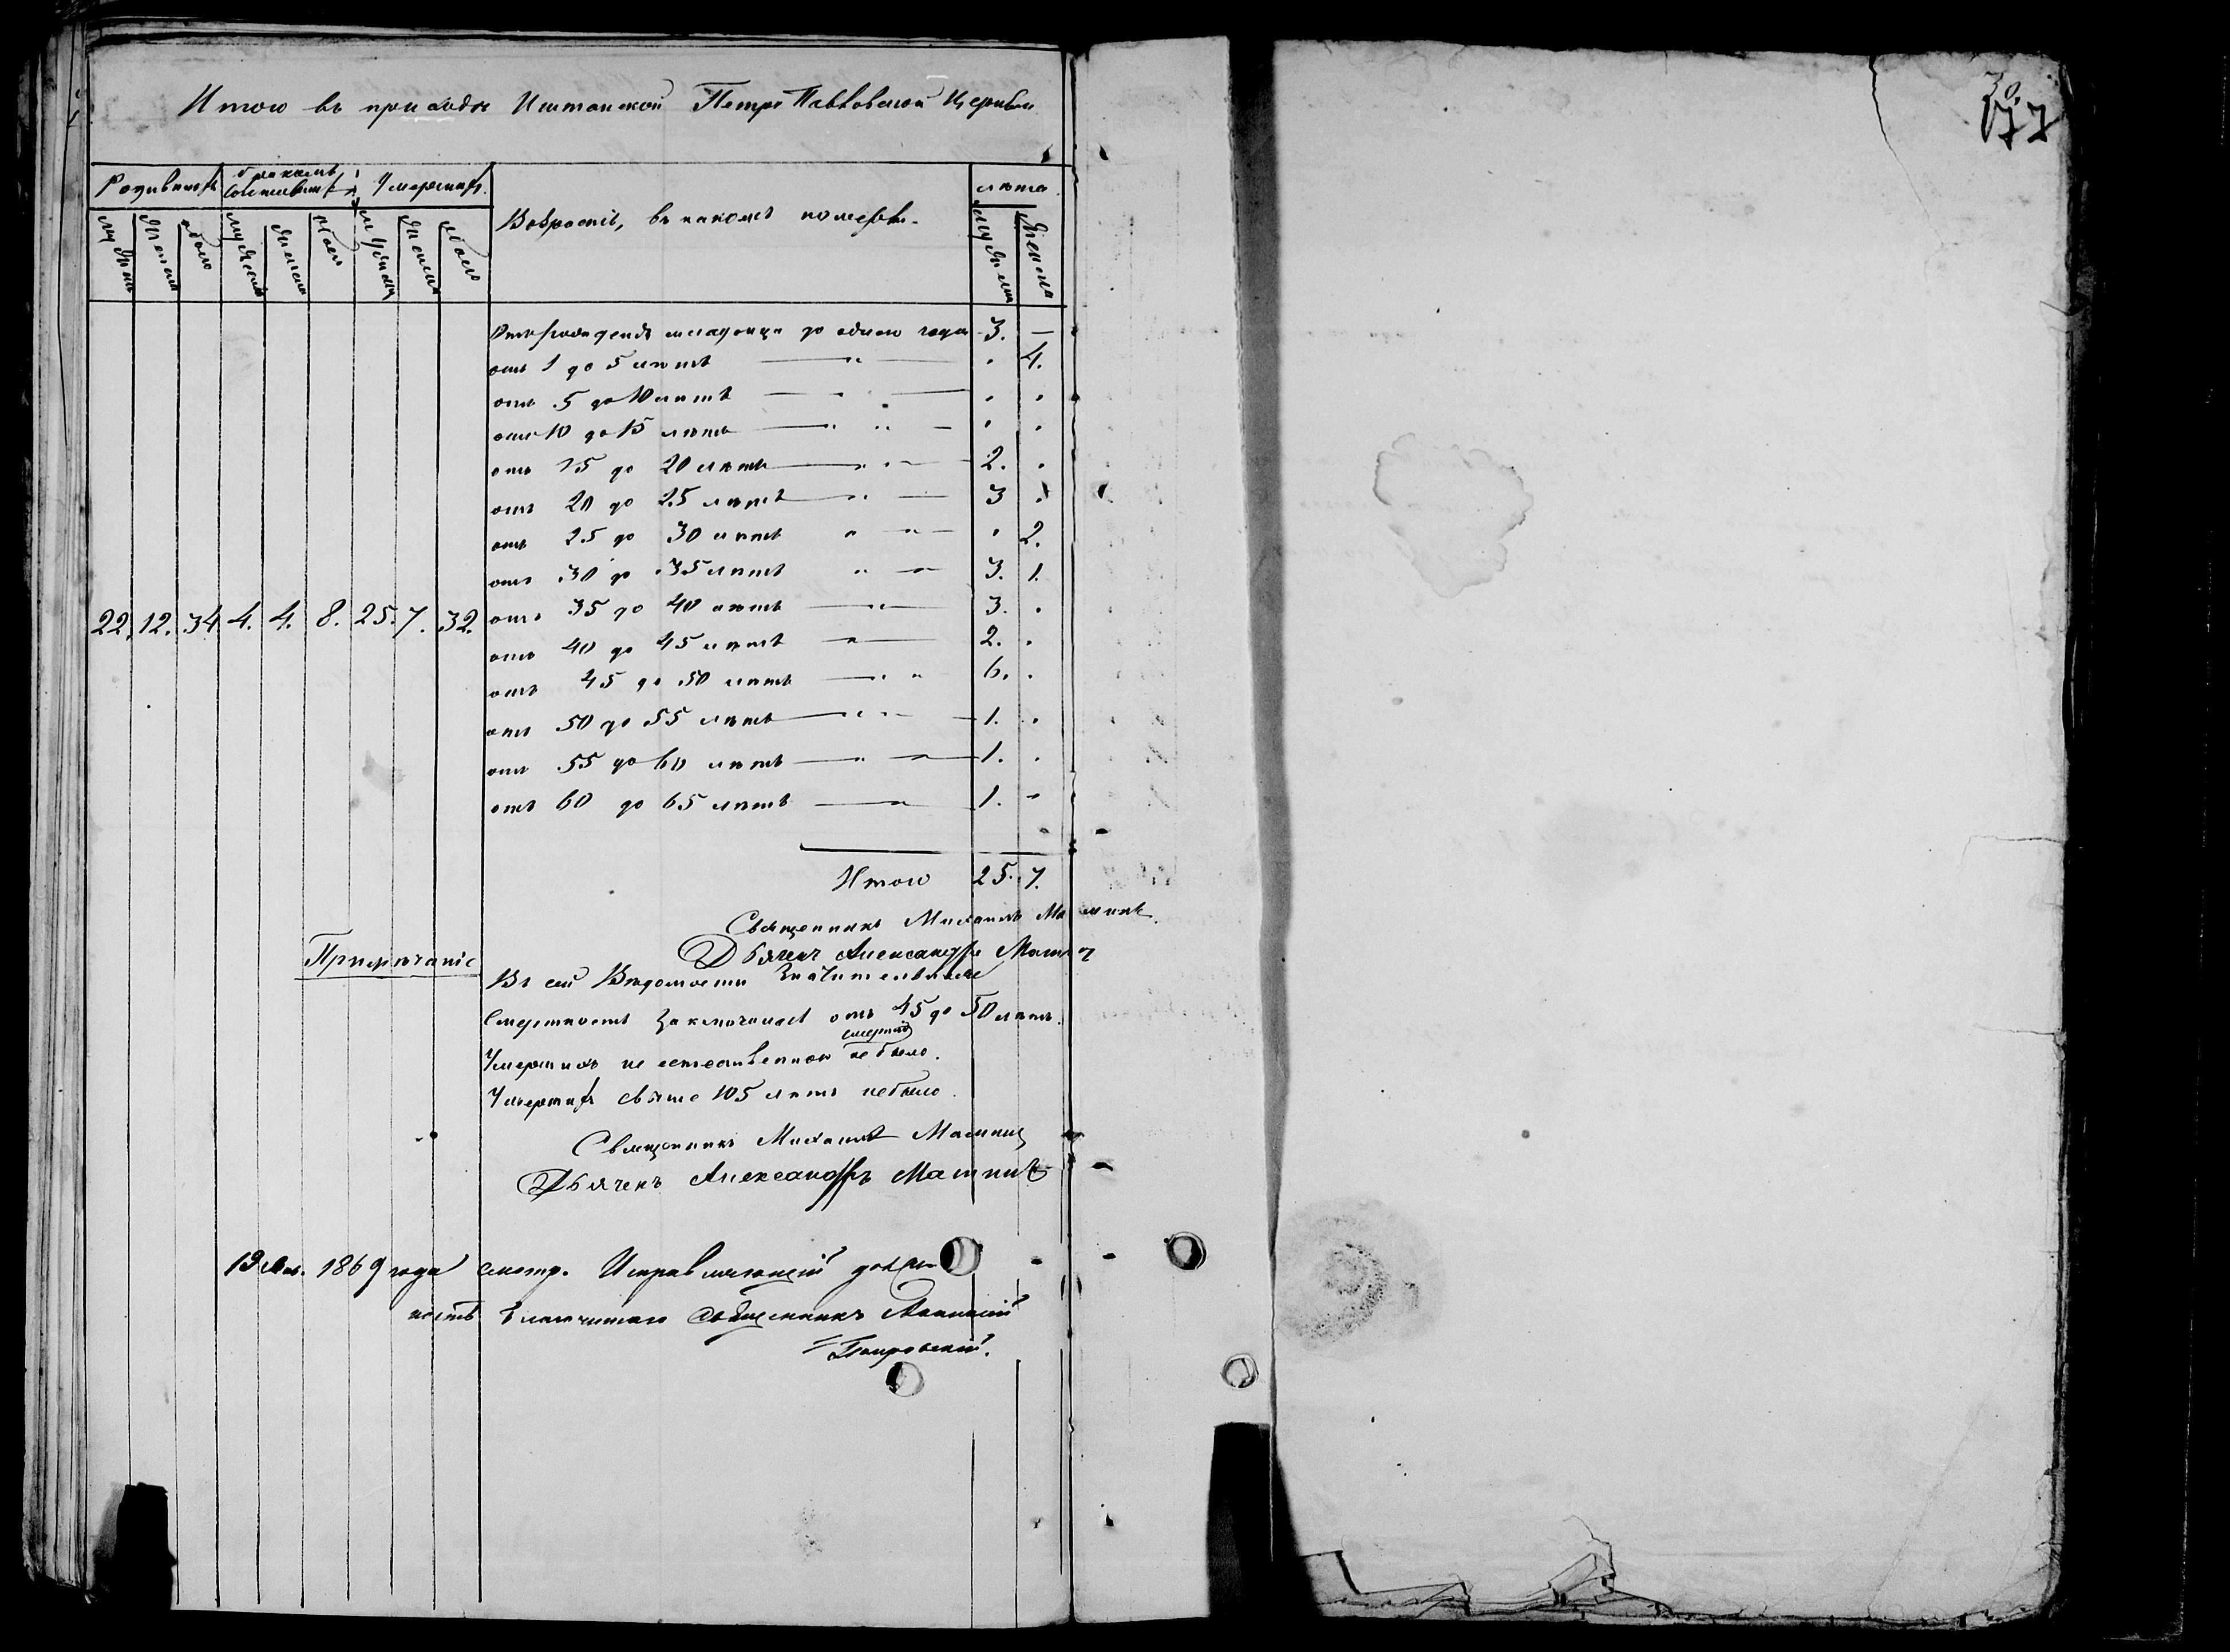 Итого въ приходѣ Иштанской Петро Павловской Церкви
Родившихъ бракомъ сочетавшихъ Умершихъ
Возрастъ, въ какомъ померли.
лѣта
мужеска женска обоего мужеска женска обоего мужеска женска обоего
мужеска женска
Отъ рожденія младенца до одного года 3. —
отъ 1 до 5 лѣтъ — „ — . 4.
отъ 5 до 10 лѣтъ — . — . .
отъ 10 до 15 лѣтъ — „ — . .
отъ 15 до 20 лѣтъ — „ — 2. .
отъ 20 до 25 лѣтъ — „ — 3 .
отъ 25 до 30 лѣтъ „ „ — . 2.
отъ 30 до 35 лѣтъ „ — 3. 1.
отъ 35 до 40 лѣтъ — „ — 3. .
22. 12. 34 4. 4. 8. 25. 7. 32.
отъ 40 до 45 лѣтъ „ — 2. .
отъ 45 до 50 лѣтъ — „ 6. .
отъ 50 до 55 лѣтъ — „ — 1. .
отъ 55 до 60 лѣтъ — „ — 1. .
отъ 60 до 65 лѣтъ — „ — 1. „
Итого 25. 7.
Священникъ Михаилъ
Дьячекъ Александръ
Примѣчаніе
Въ сей Вѣдомости Значительная
Смертность заключалась отъ 45 до 50 лѣтъ.
Умершихъ не естественною смертію не было.
Умершихъ свыше 105 лѣтъ небыло.
Священникъ Михаилъ
Дьячекъ Александръ
13 1869 года смотр. Исправляющій долж
ность благочиннаго Священникъ
Покровскій.
30.
77